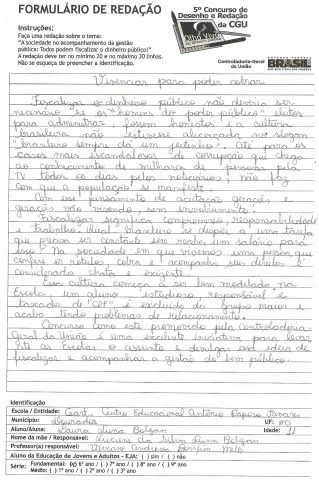 FORMULÁRIO DE REDAÇÃO
5º Concurso de
Desenho e Redação
da CGU
Instruções:
Faça uma redação sobre o tema:
"A sociedade no acompanhamento da gestão
pública: Todos podem fiscalizar o dinheiro público!"
A redação deve ter no mínimo 20 e no máximo 30 linhas.
Não se esqueça de preencher a identificação.
Controladoria-Geral
da União
BRASIL
Vivenciar para poder cobrar
Fiscalizar o dinheiro público não deveria ser
necessário se os "homens do poder público" eleitos
para administrar, fossem honestos e a cultura
brasileira não estivesse alicerçada no slogan
"brasileiro sempre dá um jeitinho". Até para os
casos mais escandalosos de corrupção que chega
ao conhecimento de milhares de pessoas pela
TV todos os dias pelos noticiários, não faz
com que a população se manifeste.
Com esse pensamento de aceitação gerações e
gerações vão vivendo sem envolvimento.
Fiscalizar significa compromisso, responsabilidade
e trabalho, ideal brasileiro se dispõe a uma tarefa
que precisa ser constante sem receber um salário para
isso? Na sociedade em que vivemos uma pessoa que
confere os extratos, cobra e acompanha seus direitos é
considerada chata e exigente.
Essa cultura começa a ser bem modelada na
Escola, um aluno estudioso, responsável é
taxado de "CDF" e excluído do grupo maior e
acaba tendo problemas de relacionamento.
Concurso como este promovido pela Controladoria
Geral da União é uma excelente iniciativa para levar
até as Escolas o assunto e divulgar essa ideia de
fiscalizar e acompanhar a gestão do bem público.
Identificação
Escola / Entidade: Ceart, Centro Educacional Antônio Raposo Tavares
Município: Dourados UF: MS
Aluno/Aluna: Laura Luna Bolzan Idade: 11
Nome da mãe / Responsável: Luciene da Silva Luna Bolzan
Professor(a) responsável: Viviane Andreia
Aluno da Educação de Jovens e Adultos - EJA: ( ) sim / ( ) não
Série: Fundamental: (x) 6º ano / ( ) 7º ano / ( ) 8º ano / ( ) 9º ano
Médio: ( ) 1º ano / ( ) 2º ano / ( ) 3º ano